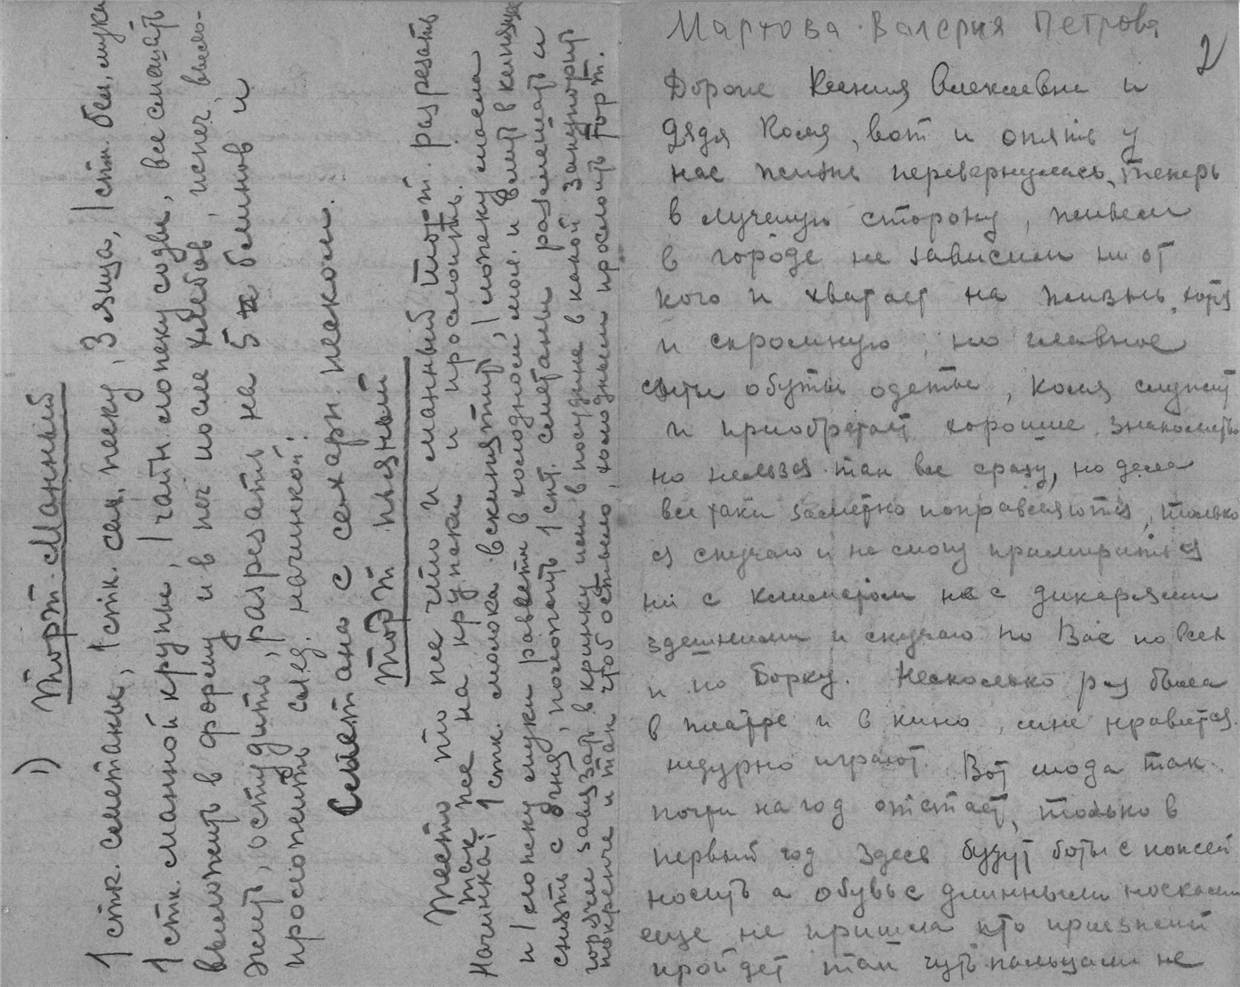 1) Торт Манный
1 стк. сметаны, 1 стк. сах. песку, 3 яйца, 1 стк. бел. муки
1 стк. манной крупы, 1 чайн ложеку соды, все смешать
выложить в форму и в печ после хлебов, испеч, выло-
жить, остудить, разрезать на 5 блинов и
проложить след. начинкой:
Сметана с сахарн. песком.
Торт пьяный
Тесто то же что и манный торт. разрезать
так же на крупеки и прослоить.
Начинка: 1 стк. молока вскипятить, 1 ложеку масла
и 1 ложеку муки развести в холодном мол. и влить в кипящее
снять с огня, положить 1 стк. сметаны размешать и
горячее в кринку или в посудине в какой закупорить
покрепче и так чтоб остыло, холодным прослоить торт.
Мархова Валерия Петрова
2
Дороги Ксения Алексевна и
дядя Коля, вот и опять у
нас жизнь перевернулась, теперь
в лучшую сторону, живем
в городе не зависим ни от
кого и хватает на жизнь, хотя
и скромную, но главное
сыты обуты одеты, Коля служит
и приобретает хорошие знакомства
но нельзя так все сразу, но дела
все таки заметно поправляются, только
я скучаю и не могу примириться
ни с климатом ни с дикарями
здешними и скучаю по Вас по всем
и по Борку. Несколько раз была
в театре и в кино, мне нравится.
недурно играют. Вот мода так
почти на год отстает, только в
первый год здесь будут боты с кожей
носить а обувь с длинными носками
еще не пришла кто приезжий
пройдет так чуть пальцами не